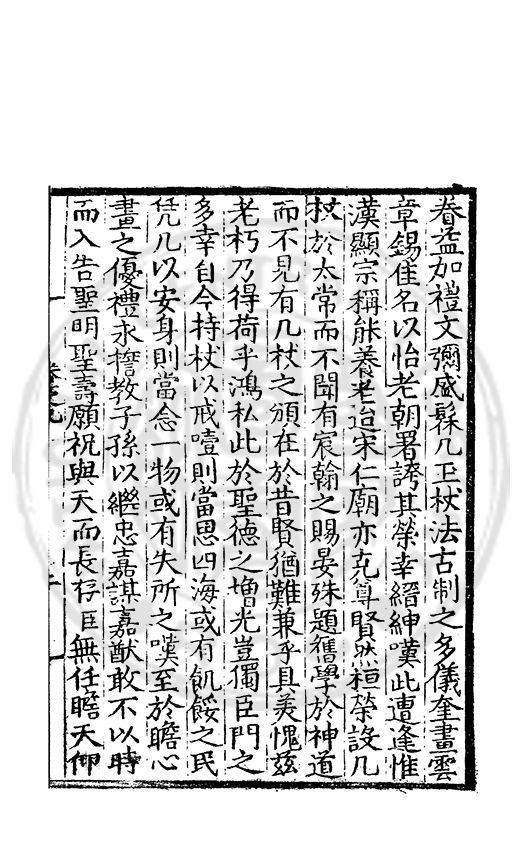 眷益加禮文彌盛髹几玉杖法古制之多儀奎畫雲
章錫隹名以怡老朝署誇其榮幸縉紳嘆此遭逢惟
漢顯宗稱能養老迨宋仁廟亦克尊賢然桓榮設几
杖於太常而不聞有宸翰之賜晏殊題舊學於神道
而不見有几杖之頒在於昔賢猶難兼乎具美愧玆
老朽乃得荷乎鴻私此於聖德之増光豈獨臣門之
多幸自今持杖以戒噎則當思四海或有飢餒之民
凭几以安身則當念一物或有失所之嘆至於瞻心
畫之優禮永擔教子孫以繼忠嘉謀嘉猷敢不以時
而入告聖明聖壽願祝與天而長存臣無任瞻天仰